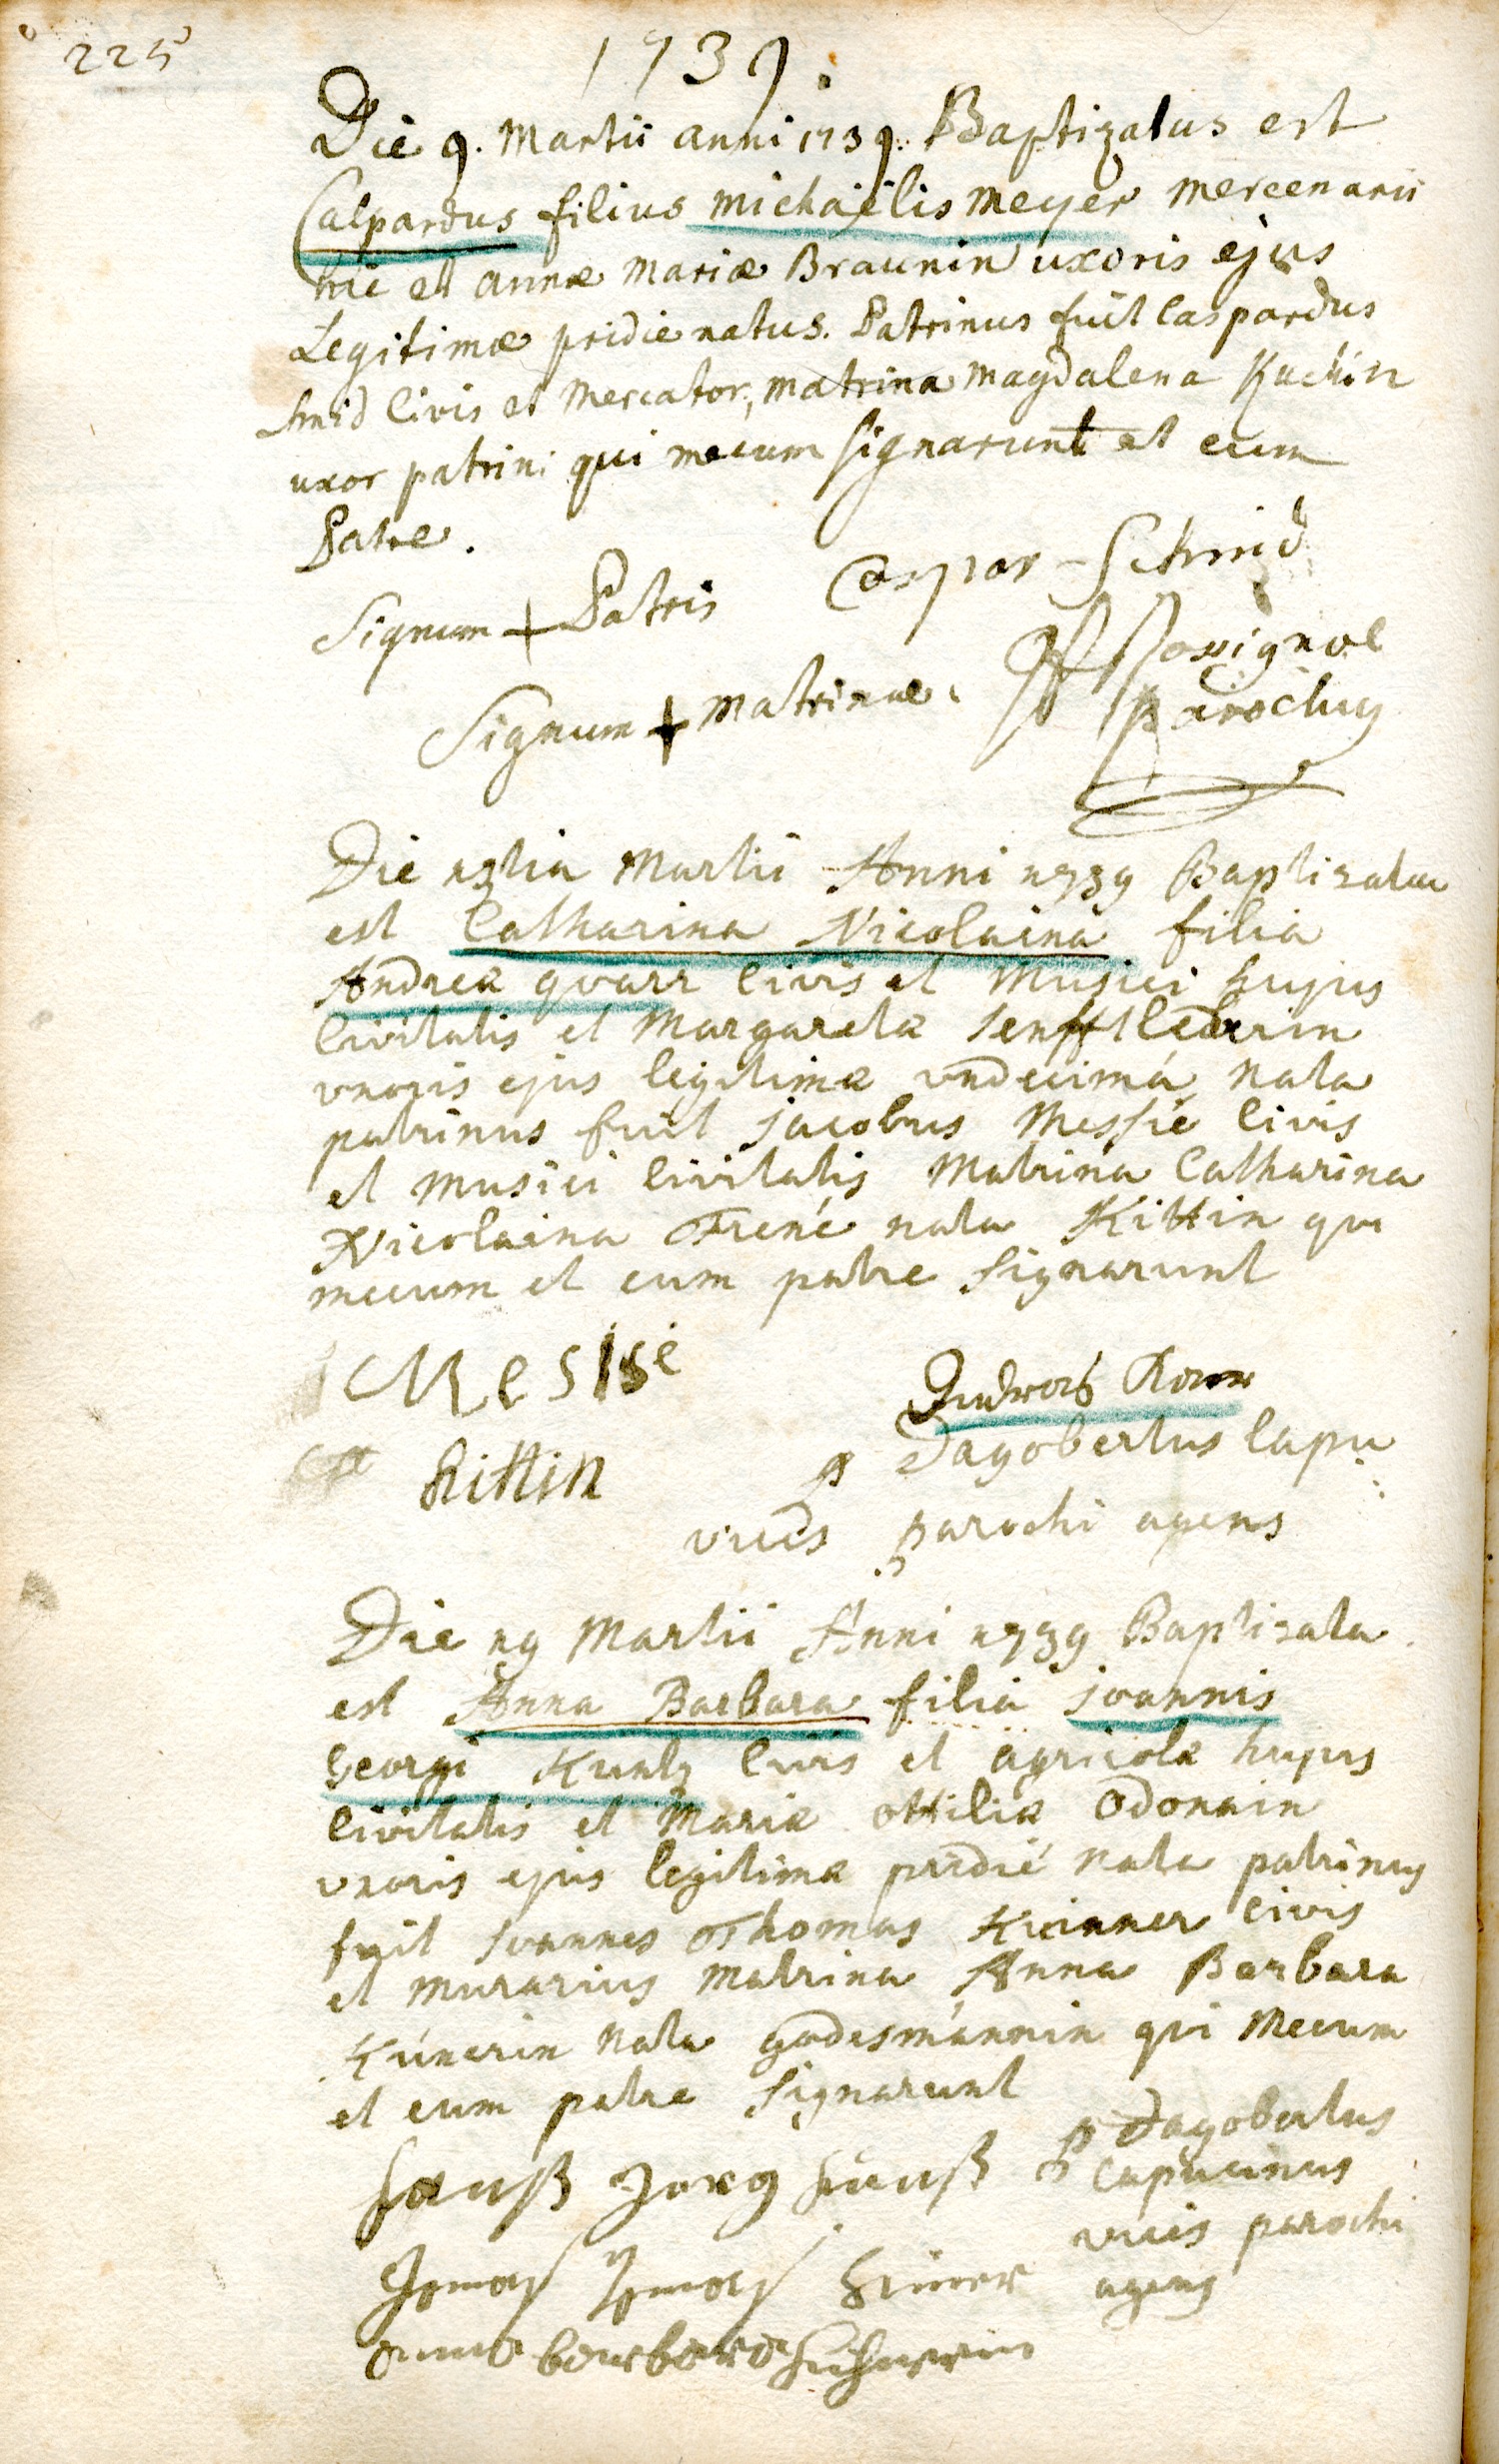 225
1739.
Die 9. Martii anni 1739. Baptizatus est
Caspardus filius Michaëlis Meyer mercenarii
hic et annæ Mariæ Braunin uxoris ejus
Legitimæ pridie natus. Patrinus fuit Caspardus
Smid Civis et Mercator, matrina Magdalena Kuchin
uxor patrini qui mecum signarunt et cum
Patre.
Signum + Patris Caspar Schmid
Signum + matrinae. Rossignol
parochus
Die 13tia Martii Anni 1739 Baptizata
est Catharina Nicolaina filia
Andreæ quarr Civis et Musici hujus
Civitatis et Margaretæ Senfftlebrin
vxoris ejus legitimæ vndecimá nata
patrinus fuit Jacobus Messié Civis
et Musici Civitatis Matrina Catharina
Nicolaina Trené nata Kittin qui
mecum et cum patre signarunt
Messié
Andreas
Kittin
p Dagobertus Capu:
vices parochi agens
Die 19 Martii Anni 1739 Baptizata
est Anna Barbara filia Joannis
Georgi Kuntz Civis et agricolæ hujus
Civitatis et Mariæ ottiliæ Odonain
vxoris ejus legitimæ pridié nata patrinus
fuit Joannes Thomas Kicinner Civis
et Murarius Matrina Anna Barbara
Kúnerin nata godesmánnin qui Mecum
et cum patre signarunt
p Dagobertus
Hanß Jorg
Capucinus
vices parochi
agens